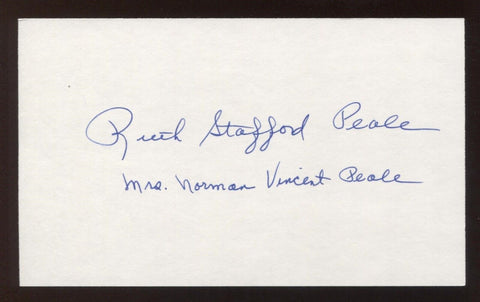 Ruth Stafford Peale
Mrs. Norman Vincent Peale